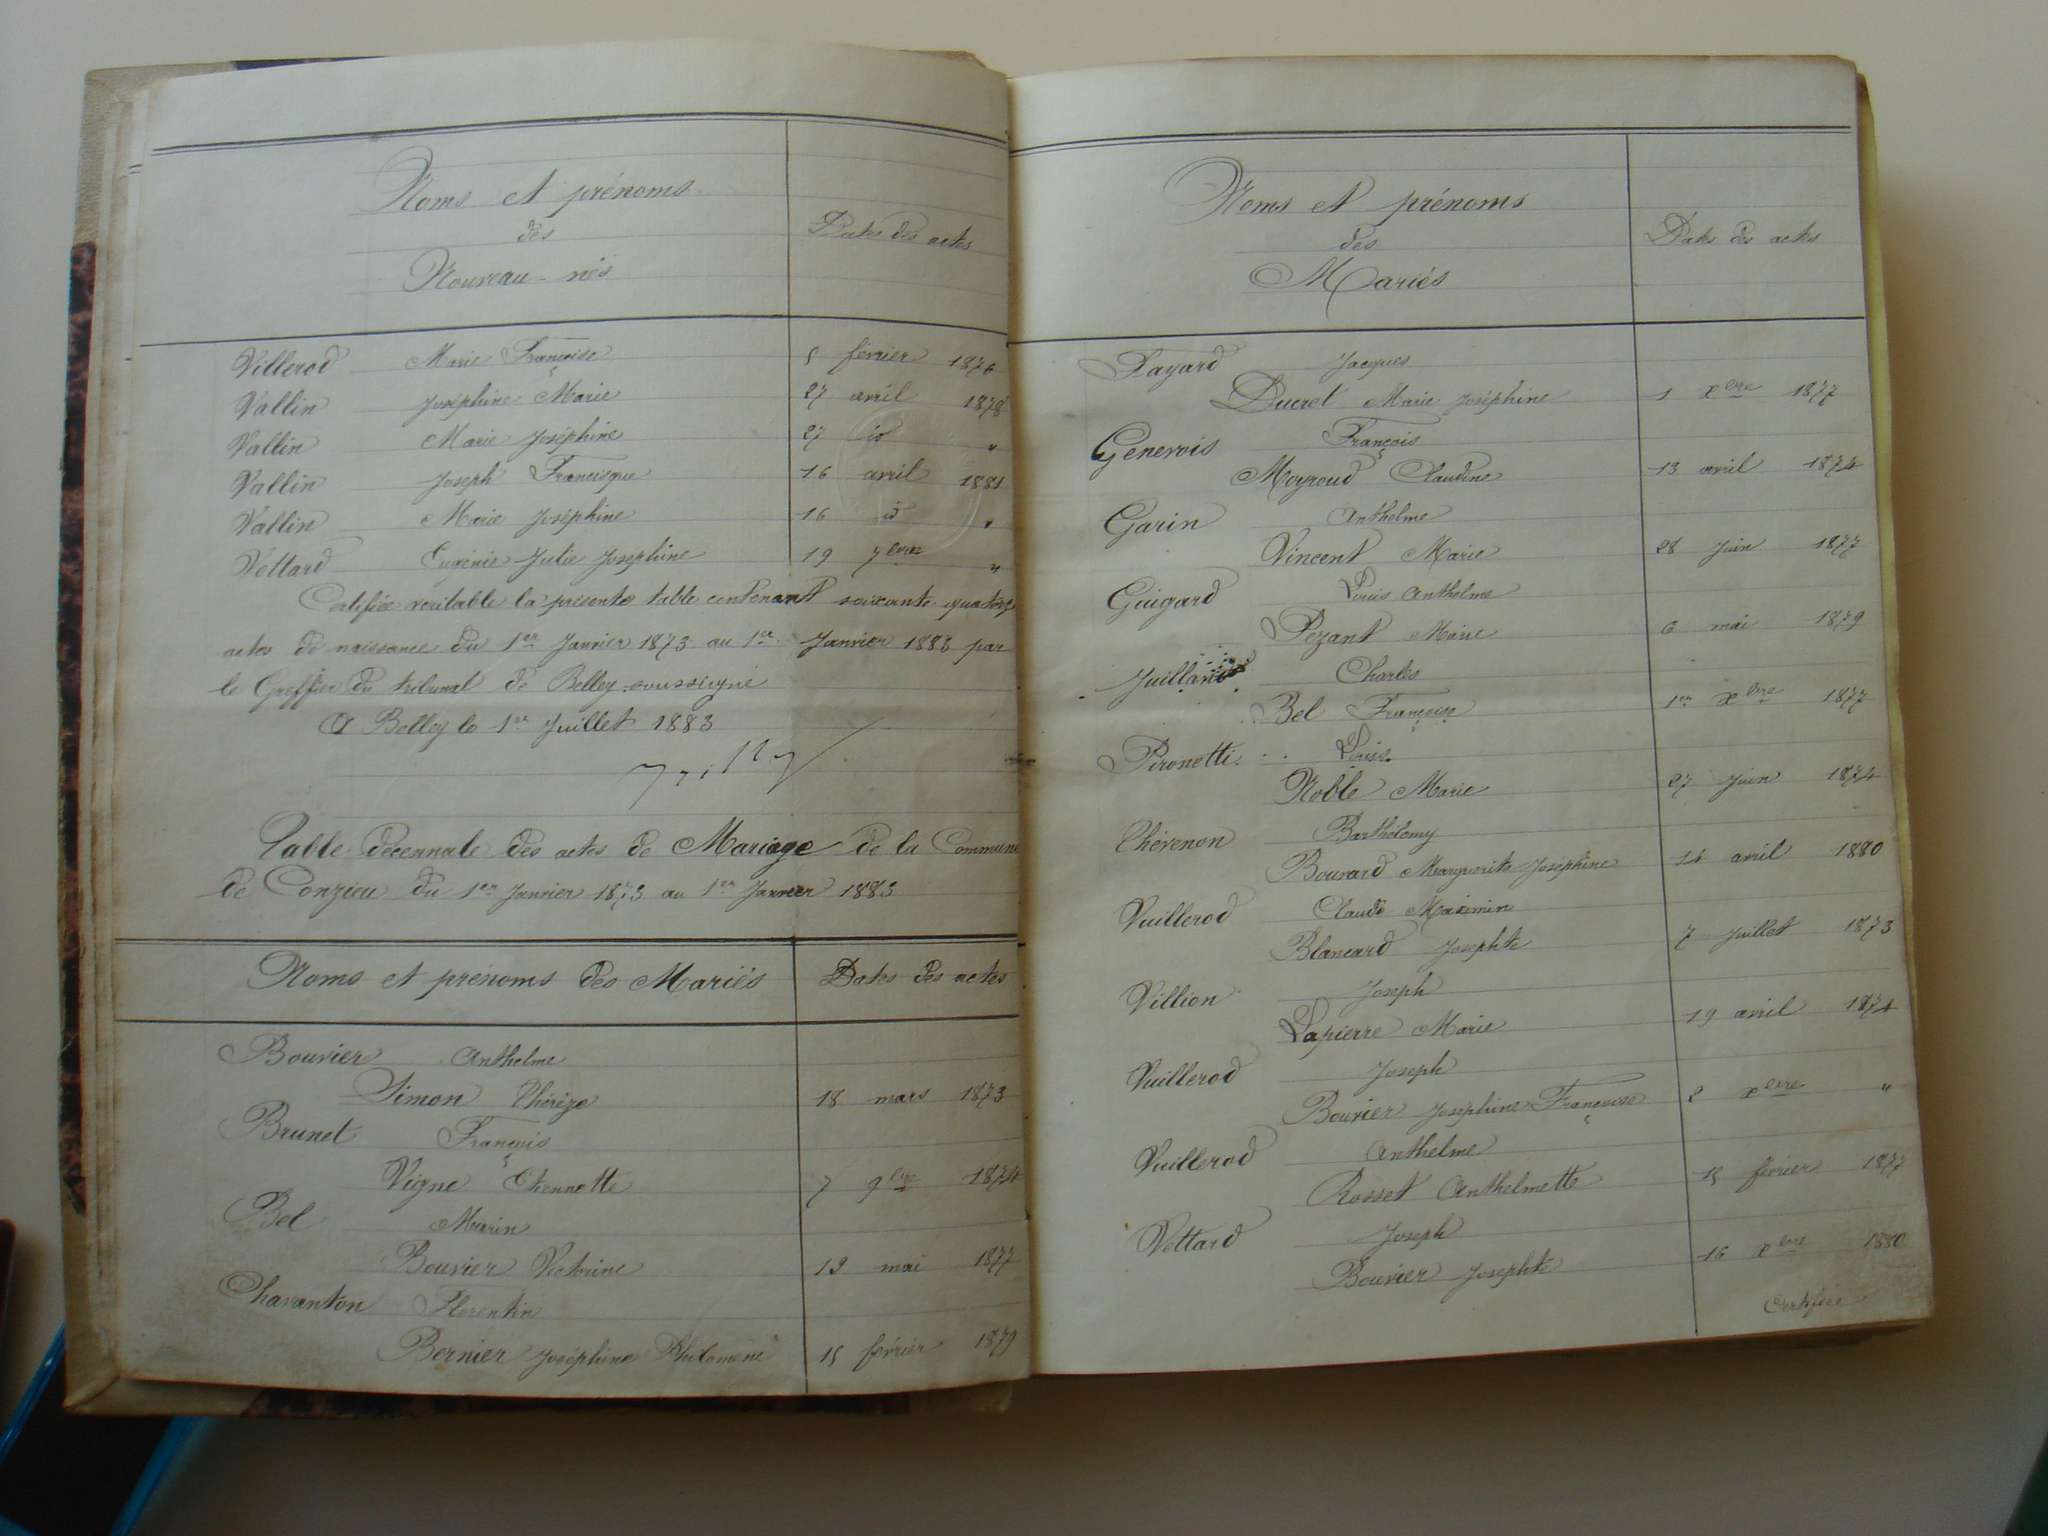 Noms et prénoms
des
Nouveau-nés
Dates des actes
Villerod Marie Françoise 5 février 1876
Vallin Joséphine Marie 27 avril 1878
Vallin Marie Joséphine 27 id "
Vallin Joseph Francisque 16 avril 1881
Vallin Marie Joséphine 16 id "
Vettard Eugénie Julie Joséphine 19 7bre "
Certifiée veritable la présente table contenant soixante quatorze
actes de naissance du 1er Janvier 1873 au 1er Janvier 1883 par
le Greffier du tribunal de Belley soussigné
A Belley le 1er Juillet 1883
Table décennale des actes de Mariage de la Commune
de Conzieu du 1er Janvier 1873 au 1er Janvier 1883
Noms et prénoms des Mariés Dates des actes
Bouvier Anthelme
Simon Thérèze 18 mars 1873
Brunet François
Vigne Etiennette 7 9bre 1874
Bel Marin
Bouvier Victorine 19 mai 1877
Chavanton Florentin
Bernier Joséphine Philomène 15 février 1879
Noms et prénoms
des
Mariés
Dates des actes
Fayard Jacques
Ducret Marie Joséphine 1 xbre 1877
Genevois François
Meyroud Claudine 13 avril 1874
Garin Anthelme
Vincent Marie 28 Juin 1877
Guigard Louis Anthelme
Pezant Marie 6 mai 1879
Juilland Charles
Bel Françoise 1er xbre 1877
Pironetti Louis
Noble Marie 27 Juin 1874
Thévenon Barthélemy
Bouvard Marguerite Joséphine 14 avril 1880
Vuillerod Claude Maximin
Blancard Josephte 7 Juillet 1873
Villion Joseph
Lapierre Marie 19 avril 1874
Vuillerod Joseph
Bouvier Joséphine Françoise 2 xbre "
Vuillerod Anthelme
Rosset Anthelmette 15 février 1877
Vettard Joseph
Bouvier Josephte 16 xbre 1880
Certifiée